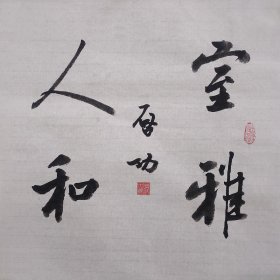 室雅
人和
启功